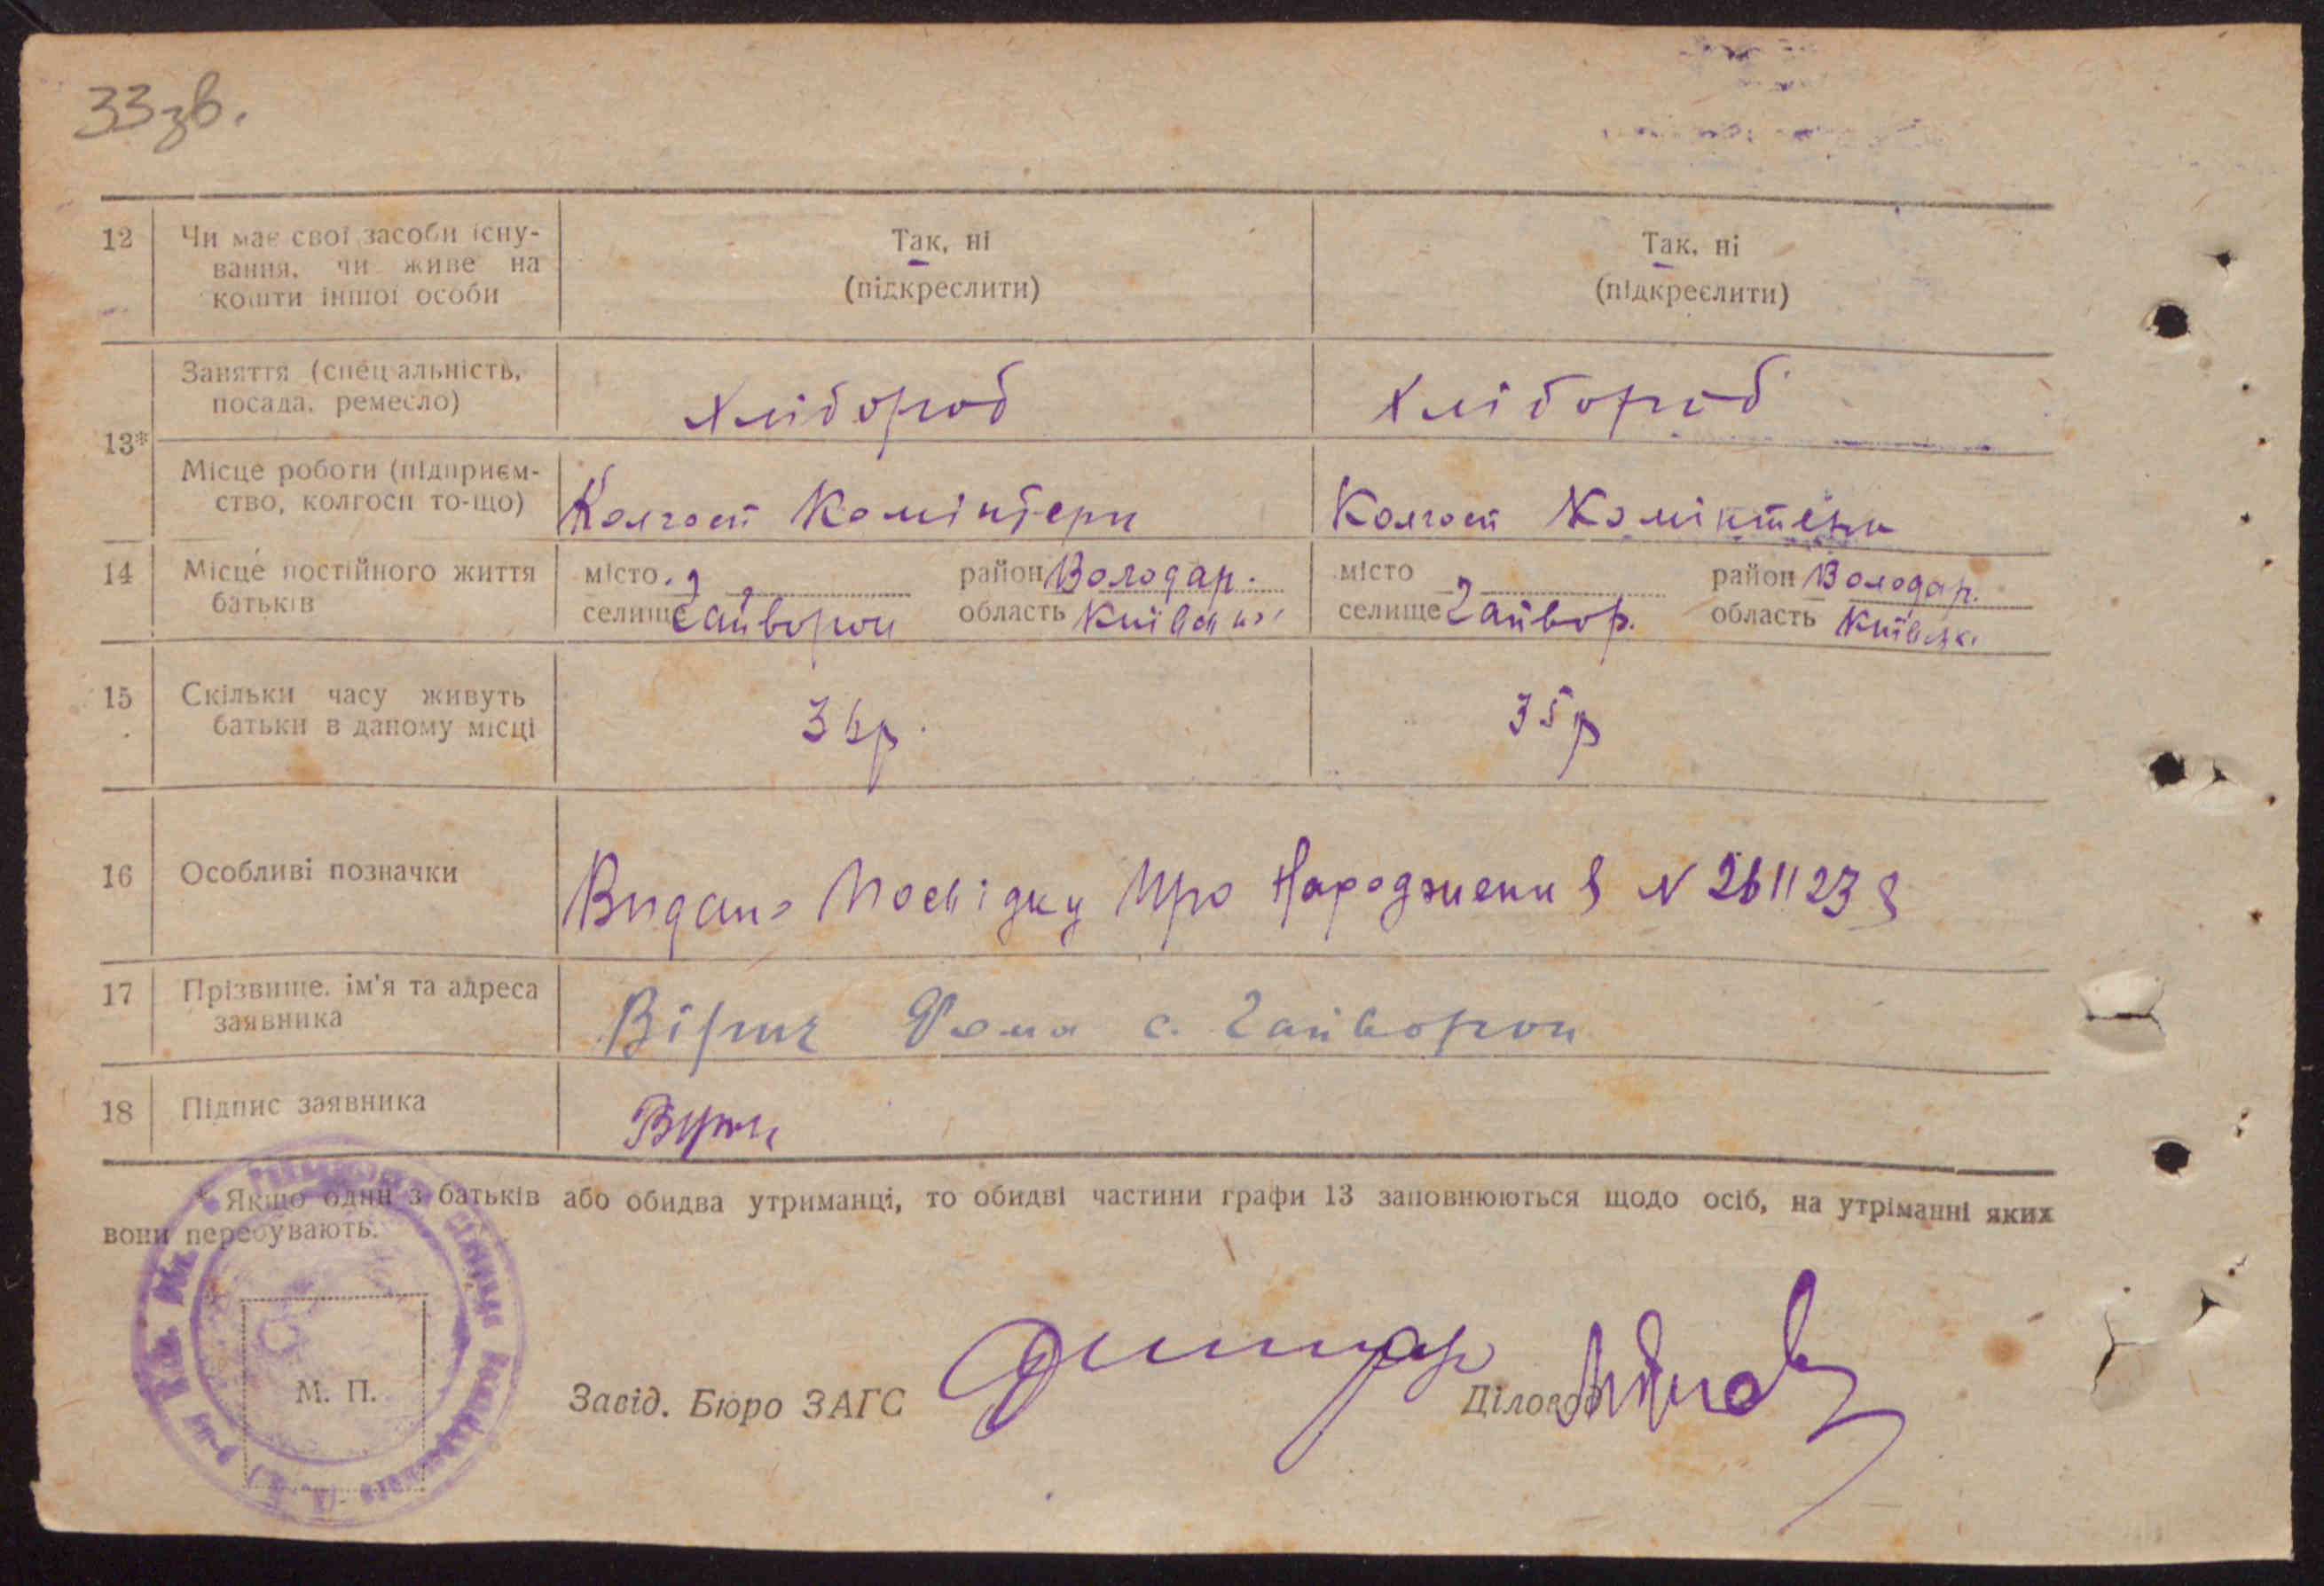 33зв.
12 Чи має свої засоби існу-
вання, чи живе на
кошти іншої особи
Так, ні
(підкреслити)
Так, ні
(підкреслити)
13*
Заняття (спеціальність,
посада, ремесло)
Хлібороб
Хлібороб
Місце роботи (підприєм-
ство, колгосп то-що)
Колгосп Комінтерн
Колгосп Комінтерн
14 Місце постійного життя
батьків
місто район Володар.
селище Гайворон область Київськ
місто район Володар.
селище Гайвор. область Київськ.
15 Скільки часу живуть
батьки в даному місці
35р
16 Особливі позначки
Видано Посвідку Про Народження N
17 Прізвище, ім'я та адреса
заявника
Вірич Фома с. Гайворон
18 Підпис заявника
* Якщо один з батьків або обидва утриманці, то обидві частини графи 13 заповнюються щодо осіб, на утріманні яких
вони перебувають.
М. П.
Завід. Бюро ЗАГС
Діловод